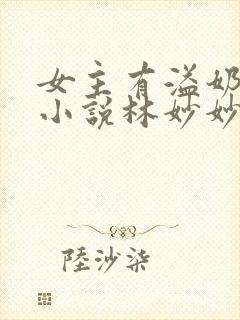 女主有溢奶
小說林妙妙
陸沙柒